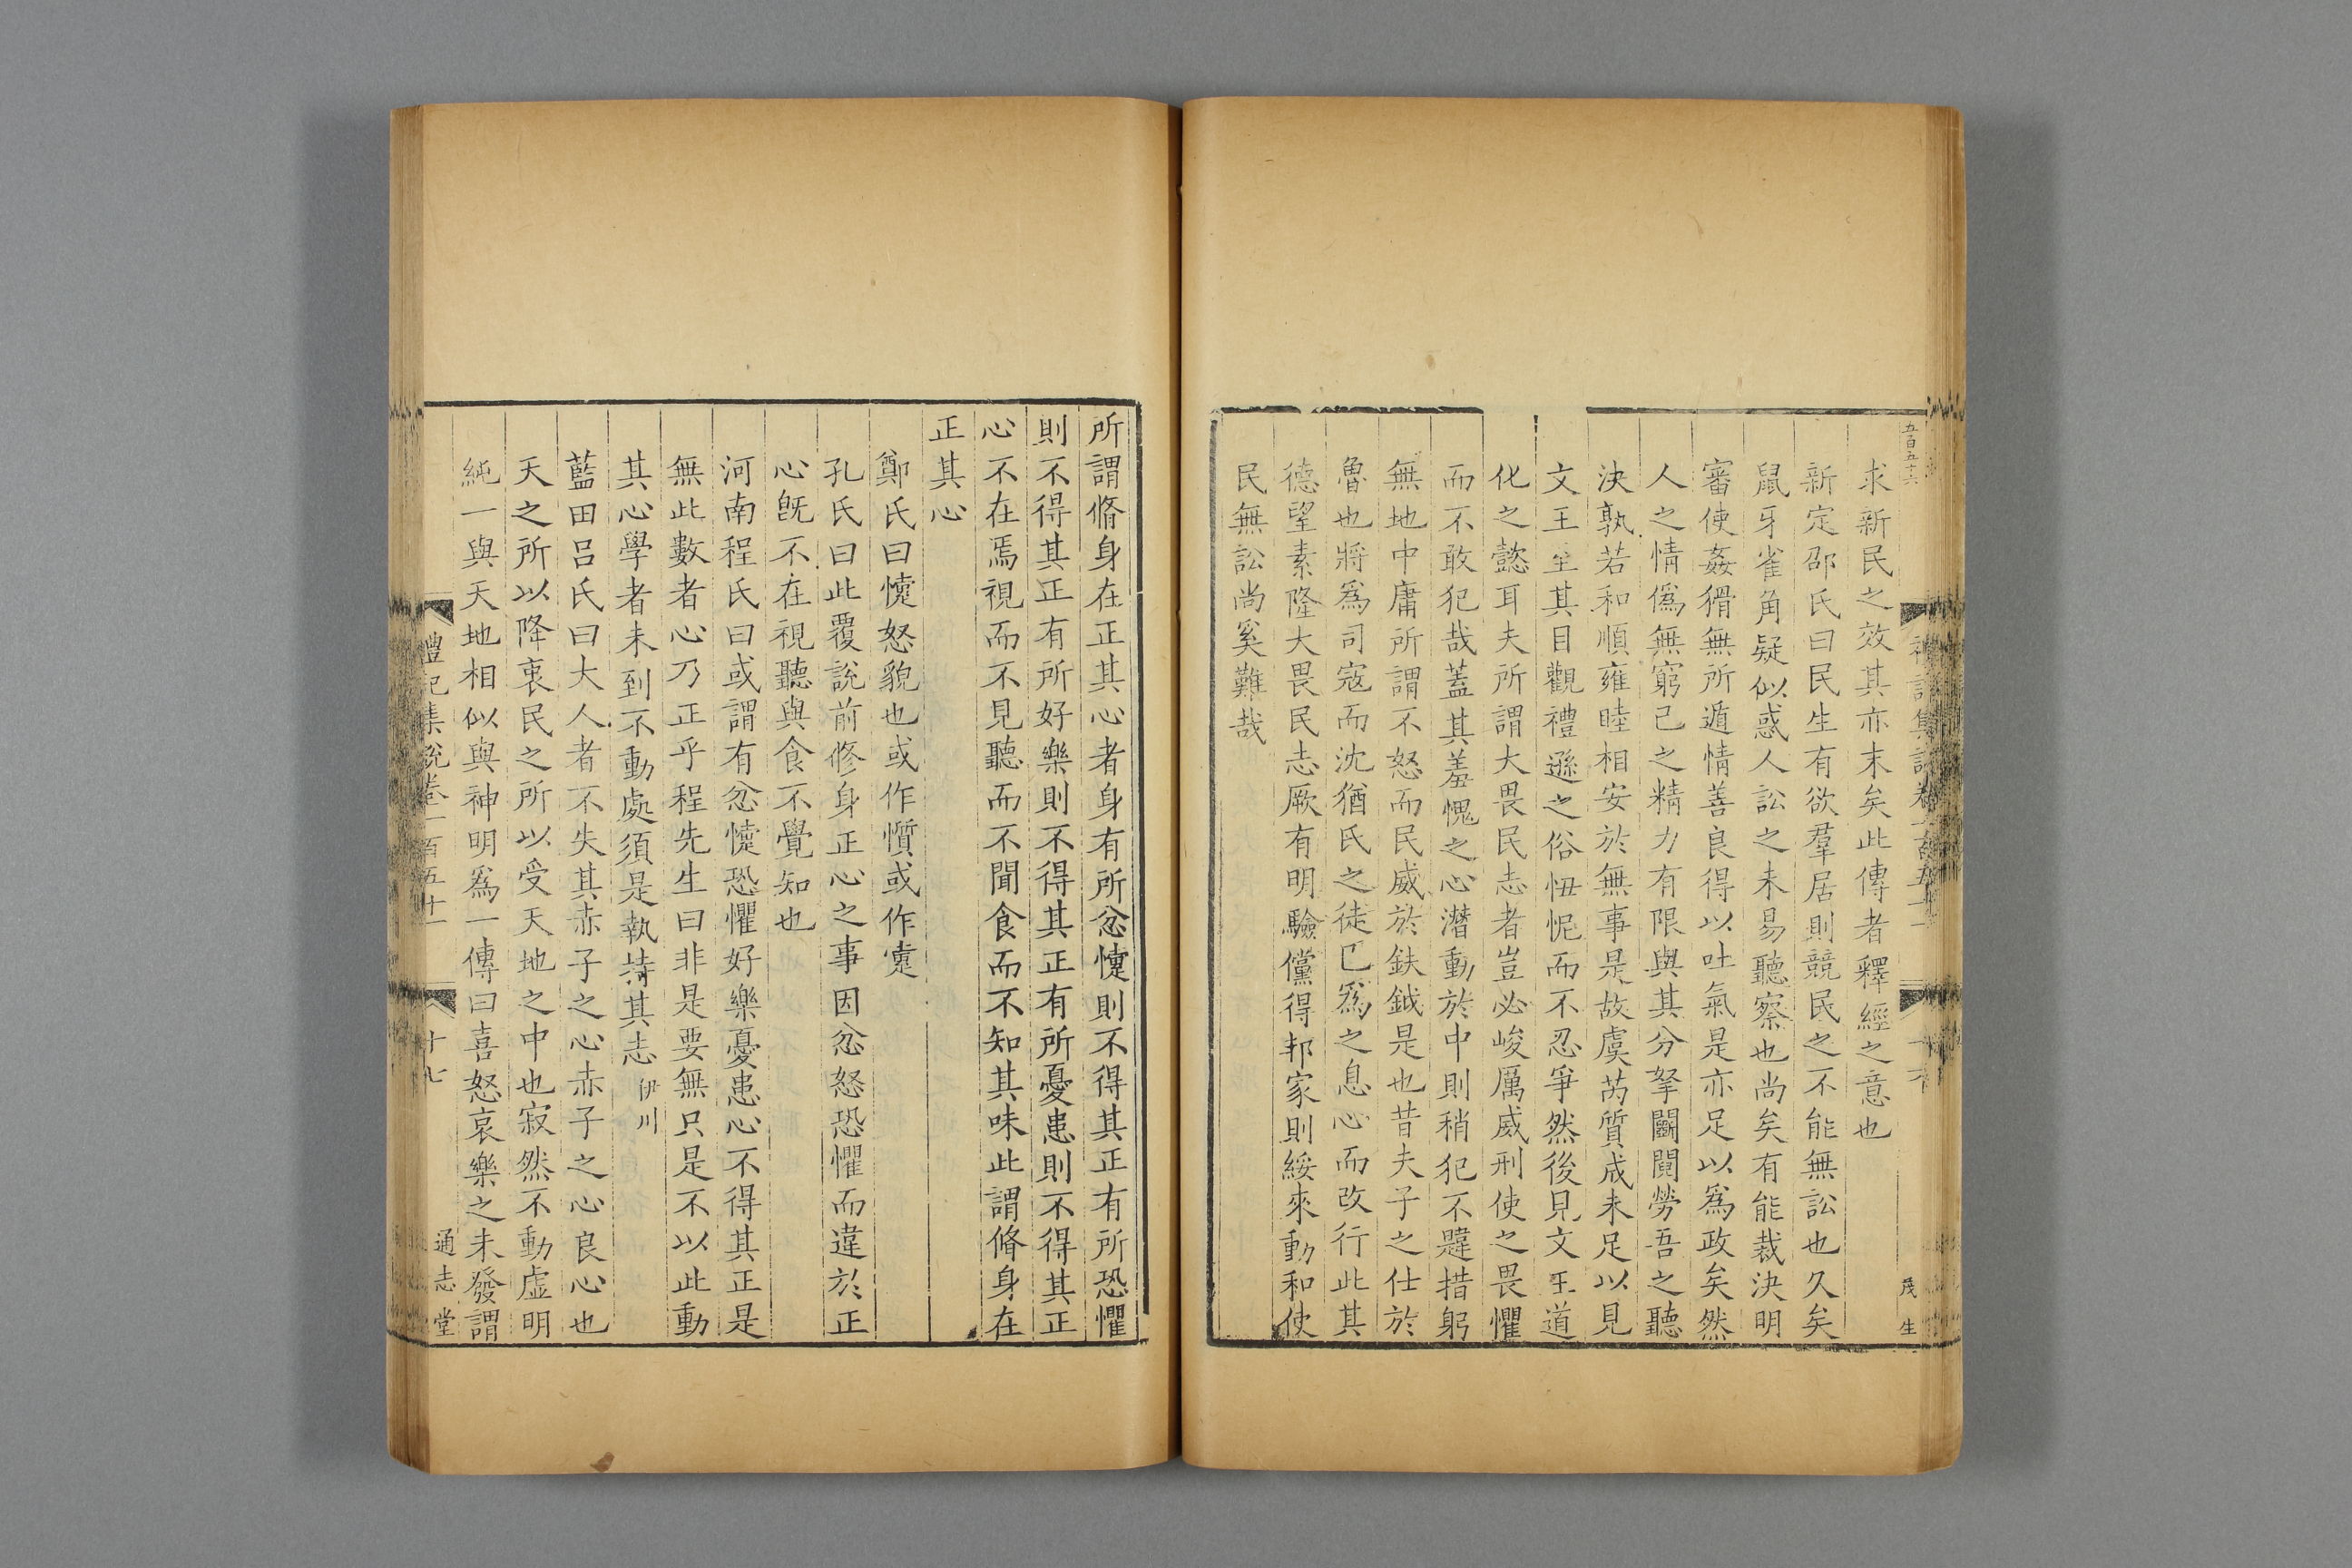 五百五十六
茂生
求新民之效其亦末矣此傳者釋經之意也
新定邵氏曰民生有欲羣居則競民之不能無訟也久矣
鼠牙雀角疑似惑人訟之未易聽察也尚矣有能裁決明
審使姦猾無所遁情善良得以吐氣是亦足以爲政矣然
人之情僞無窮己之精力有限與其分拏鬬鬩勞吾之聽
決孰若和順雍睦相安於無事是故虞芮質成未足以見
文王至其目觀禮遜之俗忸怩而不忍爭然後見文王道
化之懿耳夫所謂大畏民志者豈必峻厲威刑使之畏懼
而不敢犯哉蓋其羞愧之心潛動於中則稍犯不韙措躬
無地中庸所謂不怒而民威於鈇鉞是也昔夫子之仕於
魯也將爲司寇而沈猶氏之徒已爲之息心而改行此其
德望素隆大畏民志厥有明驗儻得邦家則綏來動和使
民無訟尚奚難哉
所謂脩身在正其心者身有所忿懥則不得其正有所恐懼
則不得其正有所好樂則不得其正有所憂患則不得其正
心不在焉視而不見聽而不聞食而不知其味此謂脩身在
正其心
鄭氏曰懥怒貌也或作懫或作疐
孔氏曰此覆說前修身正心之事因忿怒恐懼而違於正
心旣不在視聽與食不覺知也
河南程氏曰或謂有忿懥恐懼好樂憂患心不得其正是
無此數者心乃正乎程先生曰非是要無只是不以此動
其心學者未到不動處須是執持其志伊川
藍田呂氏曰大人者不失其赤子之心赤子之心良心也
天之所以降衷民之所以受天地之中也寂然不動虛明
純一與天地相似與神明爲一傳曰喜怒哀樂之未發謂
禮記集說卷一百五十一
十七
通志堂